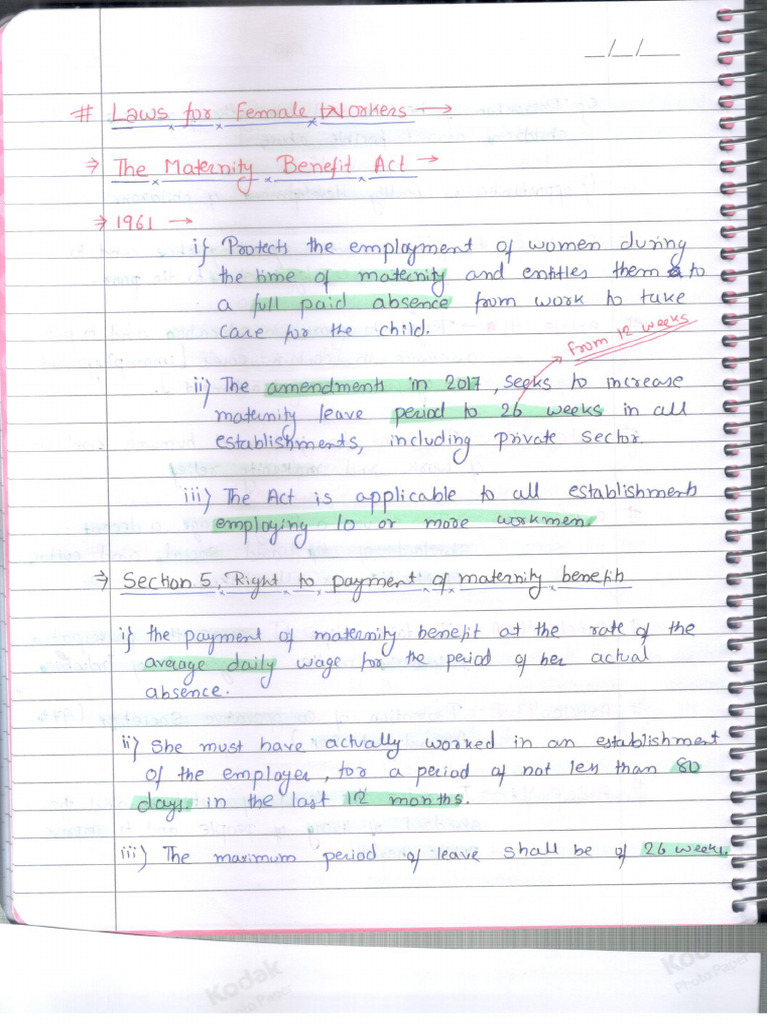 _/_/__
# Laws for Female Workers →
⇒ The Maternity Benefit Act →
⇒ 1961 →
i} Protects the employment of women during
the time of maternity and entitles them to
a full paid absence from work to take
care for the child.
from 12 weeks
ii) The amendments in 2017, seeks to increase
maternity leave period to 26 weeks in all
establishments, including private sector.
iii) The Act is applicable to all establishments
employing 10 or more workmen.
⇒ Section 5, Right to payment of maternity benefits
i} the payment of maternity benefit at the rate of the
average daily wage for the period of her actual
absence.
ii) She must have actually worked in an establishment
of the employer, for a period of not less than 80
days in the last 12 months.
iii) The maximum period of leave shall be of 26 weeks.
Kodak
Photo Paper
Kodak
Photo Paper